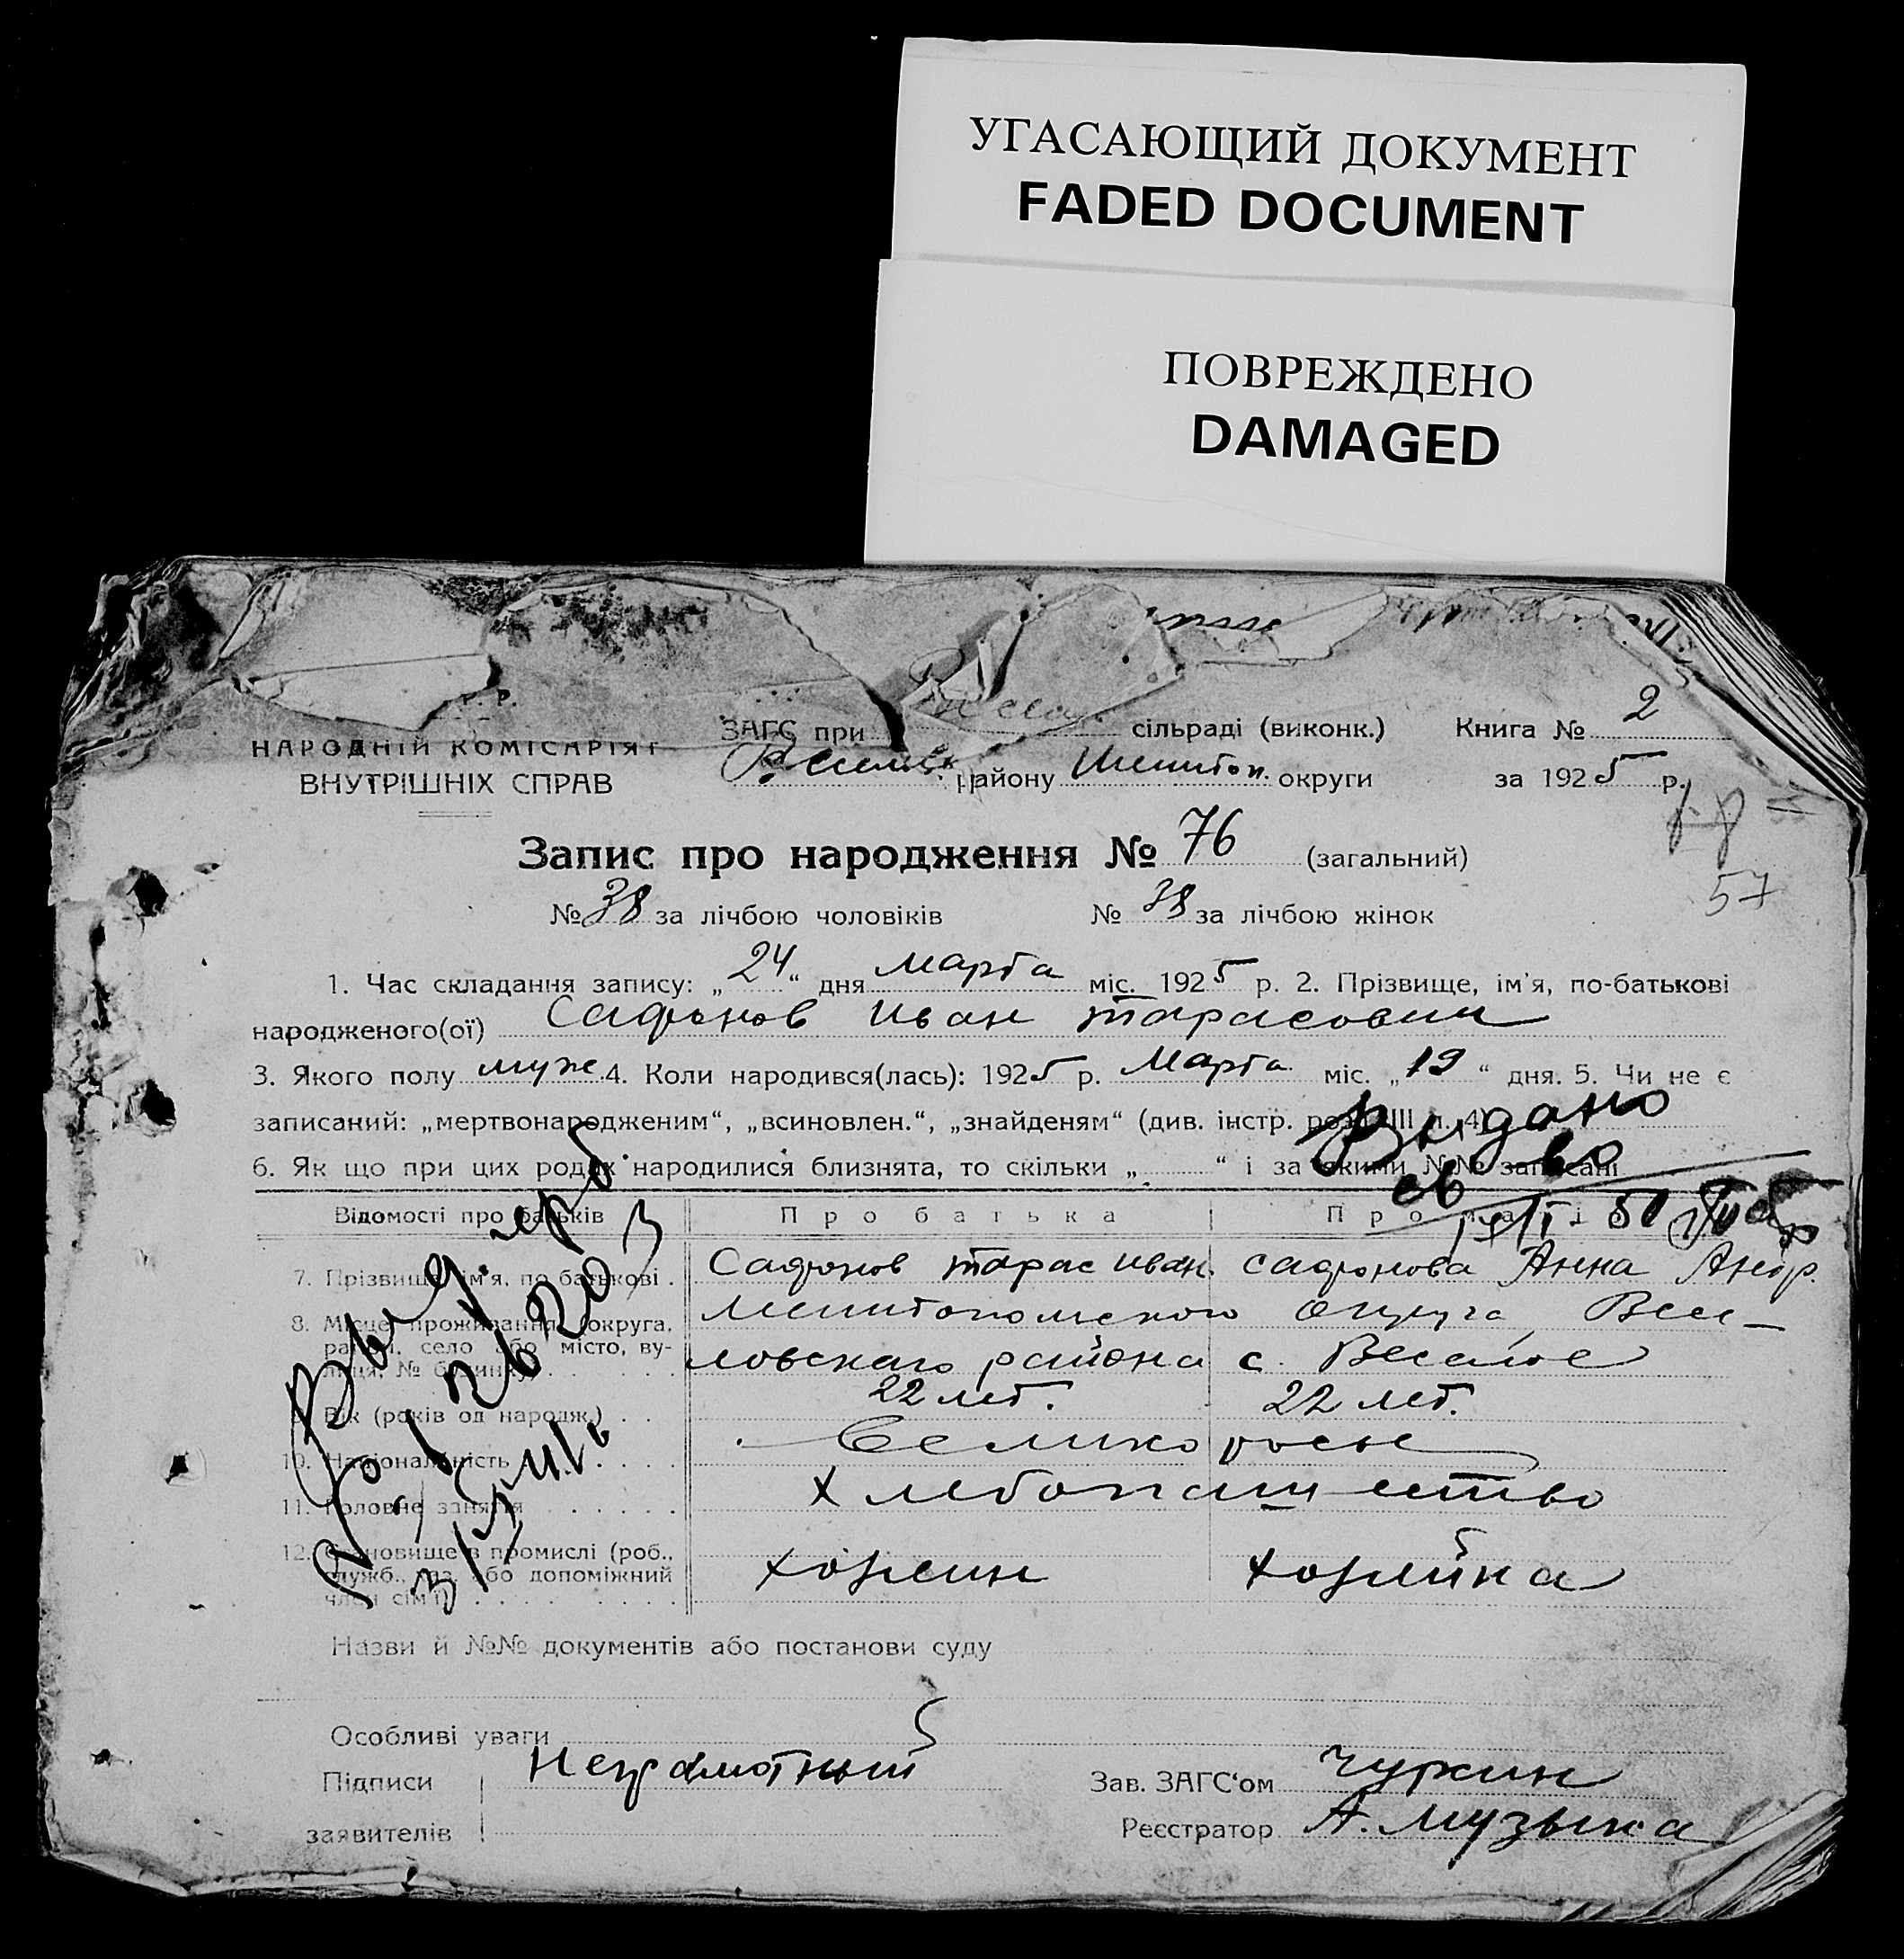 УГАСАЮЩИЙ ДОКУМЕНТ
FADED DOCUMENT
ПОВРЕЖДЕНО
DAMAGED
НАРОДНІЙ КОМІСАРІЯТ
ВНУТРІШНІХ СПРАВ
ЗАГС при сільраді (виконк.) Книга № 2
району округи за 1925 р.
Запис про народження № 76 (загальний)
57
№ 38 за лічбою чоловіків № 38 за лічбою жінок
1. Час складання запису: „24“ дня Марта міс. 1925 р. 2. Прізвище, ім'я, по-батькові
народженого(ої) Сафонов Иван Тарасович
3. Якого полу муж 4. Коли народився(лась): 1925 р. Марта міс. „19“ дня. 5. Чи не є
записаний: „мертвонародженим“, „всиновлен.“, „знайденям“ (див. інстр. розд. III п. 4)
Выдано
6. Як що при цих родах народилися близнята, то скільки „ “ і за якими №№ записані
св во
Відомості про батьків Про батька Про матір
7. Прізвище, ім'я, по батькові . Сафонов Тарас Иван. Сафонова Анна Андр.
8. Місце проживання (округа, Мелитопольского округа, Весе-
район, село або місто, ву-
лиця, № будинку) ловского района с. Веселое
9. Вік (років од народж.) . . 22 лет. 22 лет.
10. Національність . . . . Великороссы
11. Головне заняття . . . . . . Хлебопашество
12. Становище в промислі (роб.,
служб., газ. або допоміжний Хозяин Хозяйка
член сім'ї) . . . .
Назви й №№ документів або постанови суду
Особливі уваги
Підписи Неграмотный Зав. ЗАГС‘ом Чуркин
заявителів Реєстратор А. Музыка